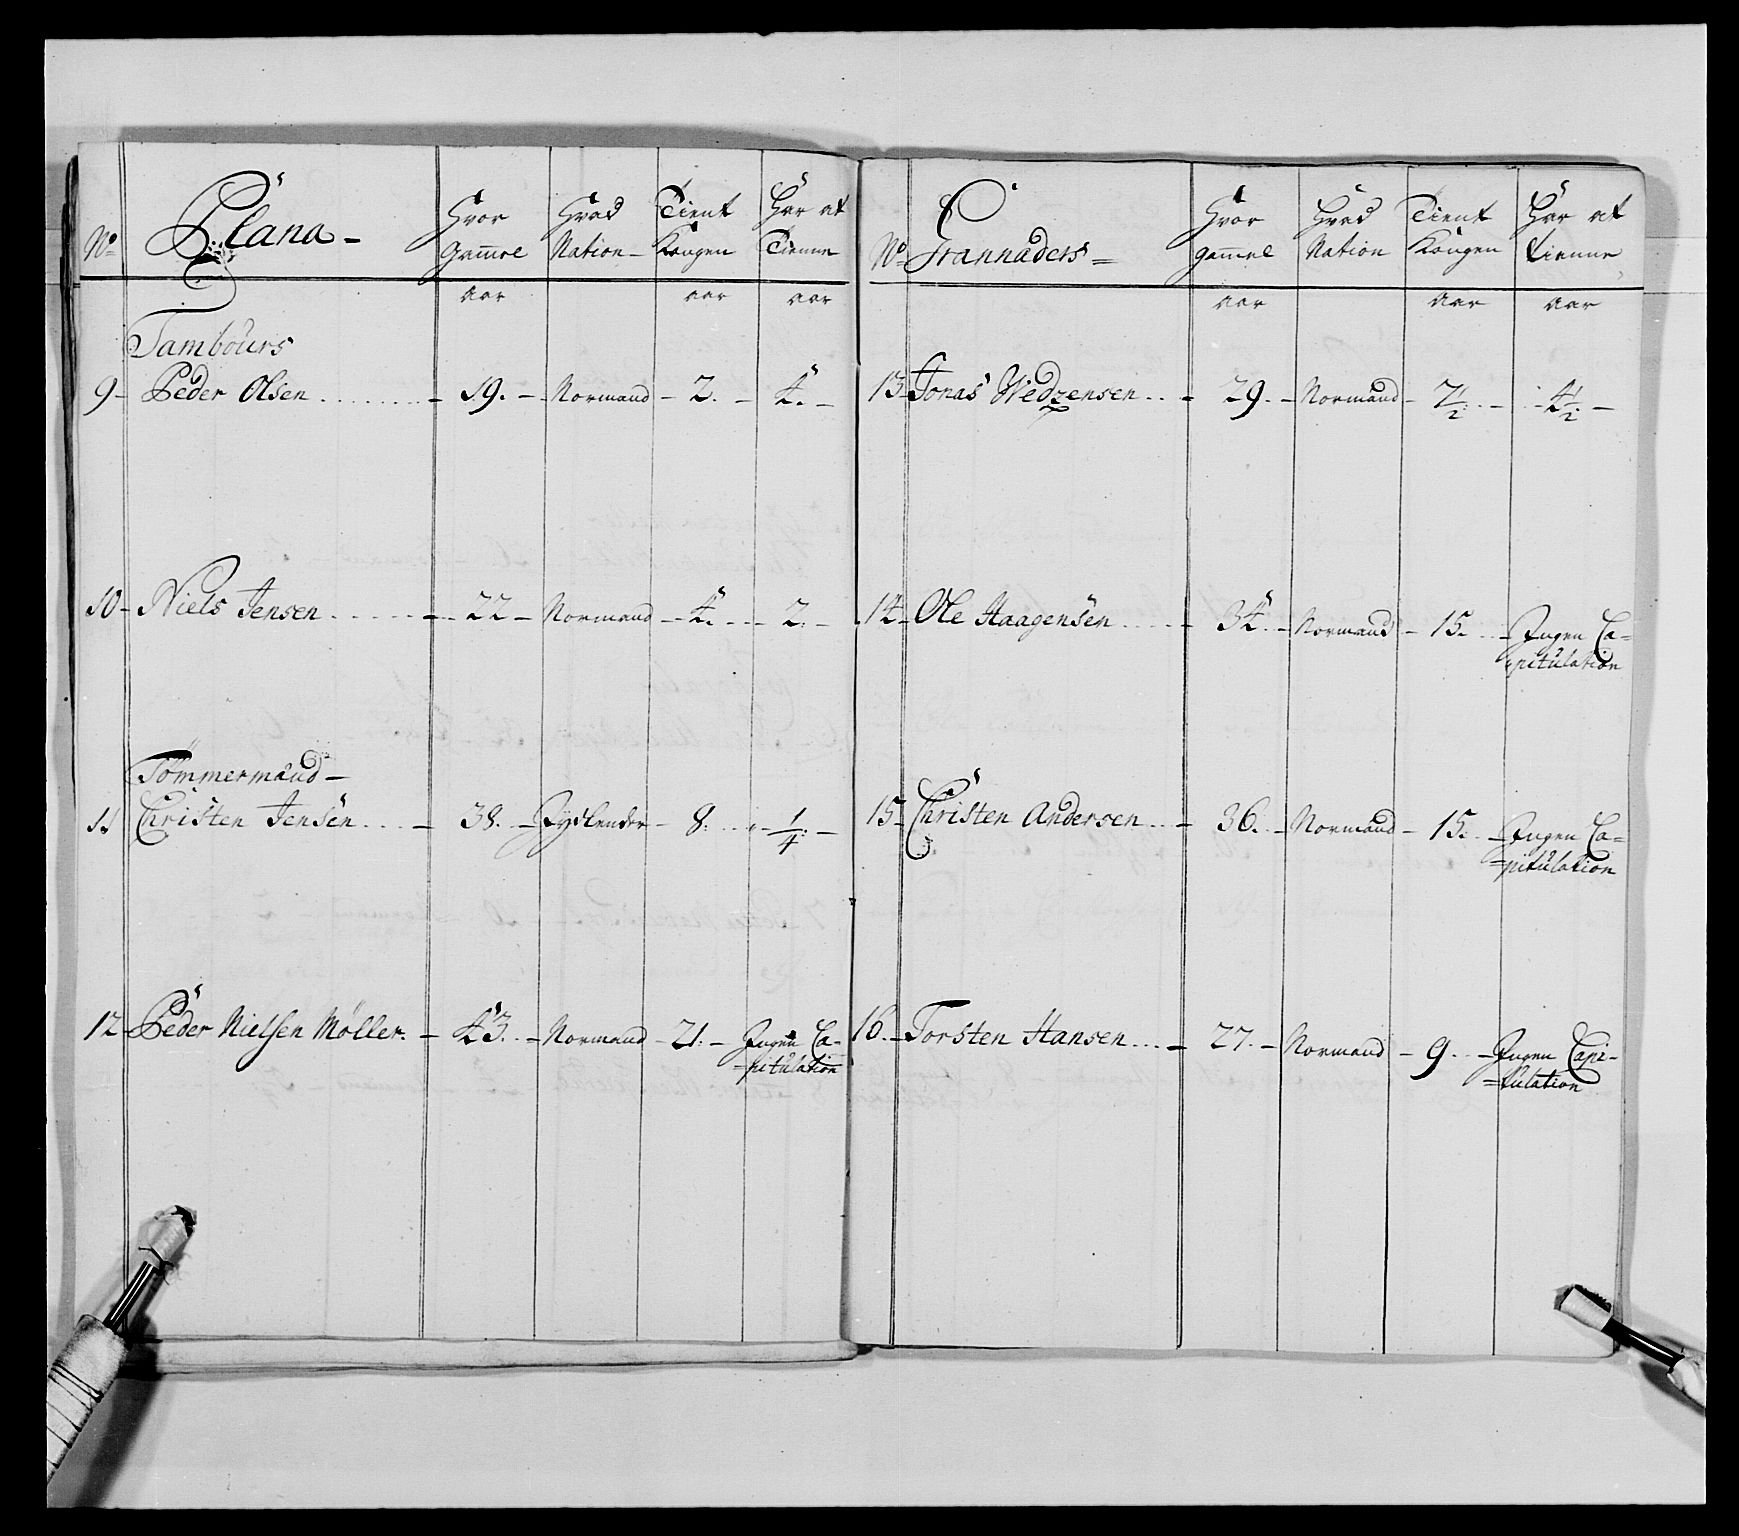 No Plana - Hvor Gammel Hvad Nation - Tient Kongen Har at Tienne
aar aar aar
Tambours
9 - Peder Olsen - 19. - Normand - 2. - 4. -
10 - Niels Jensen - 22 - Normand - 4. - 2. -
Tömmermand -
11 Christen Jensen - 38. - Jydlender - 8. - 1/4 -
12 - Peder Nielsen Møller. - 43. - Normand - 21. - Ingen Ca-
=pitulation
No Grannaders = Hvor gammel Hvad Nation Tient Kongen Har at tienne
aar aar aar
13 - Jonas - 29. - Normand - 7 1/2. - 4 1/2. -
14 - Ole Haagensen - 34. - Normand - 15. - Ingen Ca=
=pitulation
15 - Christen Andersen - 36. - Normand - 15. - Ingen Ca=
=pitulation
16. - Torsten Hansen - 27. - Normand - 9. - Ingen Capi-
=tulation